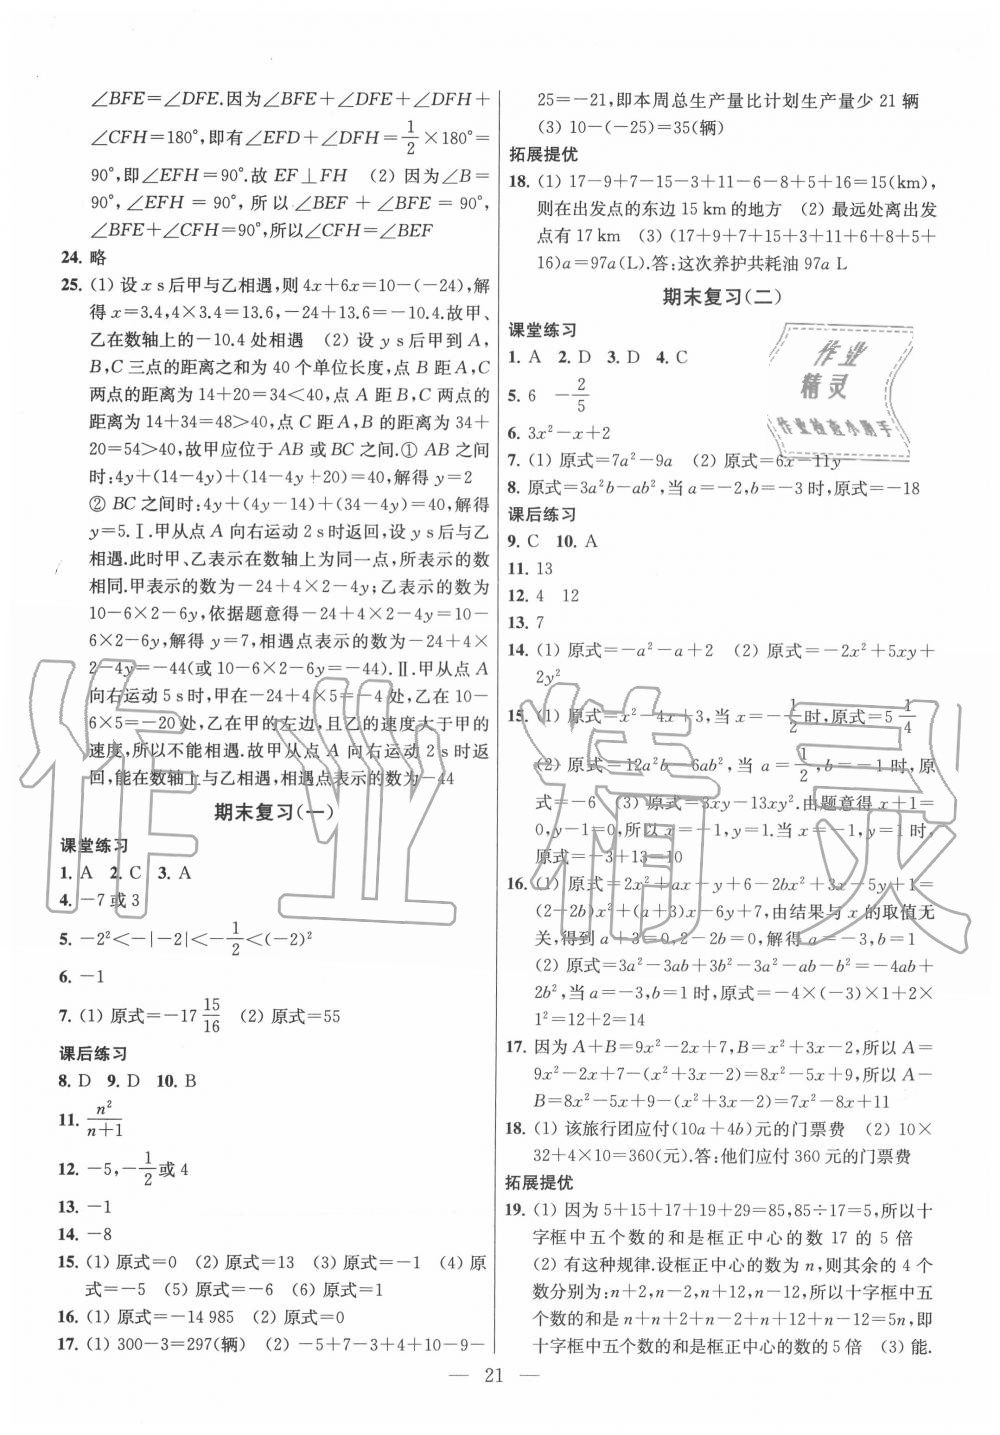 ∠BFE=∠DFE.因为∠BFE+∠DFE+∠DFH+
∠CFH=180°,即有∠EFD+∠DFH=1/2×180°=
90°,即∠EFH=90°.故 EF⊥FH (2) 因为∠B=
90°,∠EFH=90°,所以∠BEF+∠BFE=90°,
∠BFE+∠CFH=90°,所以∠CFH=∠BEF
24. 略
25. (1) 设 x s后甲与乙相遇,则4x+6x=10-(-24),解
得 x=3.4,4×3.4=13.6,-24+13.6=-10.4.故甲、
乙在数轴上的-10.4处相遇 (2) 设 y s后甲到 A,
B,C 三点的距离之和为 40 个单位长度,点 B 距 A,C
两点的距离为 14+20=34<40,点 A 距 B,C 两点的
距离为 14+34=48>40,点 C 距 A,B 的距离为 34+
20=54>40,故甲应位于 AB 或 BC 之间.① AB 之间
时:4y+(14-4y)+(14-4y+20)=40,解得 y=2
② BC 之间时:4y+(4y-14)+(34-4y)=40,解得
y=5.Ⅰ.甲从点 A 向右运动 2 s时返回,设 y s后与乙
相遇.此时甲、乙表示在数轴上为同一点,所表示的数
相同.甲表示的数为-24+4×2-4y;乙表示的数为
10-6×2-6y,依据题意得-24+4×2-4y=10-
6×2-6y,解得 y=7,相遇点表示的数为-24+4×
2-4y=-44(或 10-6×2-6y=-44).Ⅱ.甲从点 A
向右运动 5 s时,甲在-24+4×5=-4 处,乙在 10-
6×5=-20 处,乙在甲的左边,且乙的速度大于甲的
速度,所以不能相遇.故甲从点 A 向右运动 2 s时返
回,能在数轴上与乙相遇,相遇点表示的数为-44
期末复习(一)
课堂练习
1. A 2. C 3. A
4. -7或 3
5. -2²<-|-2|<-1/2<(-2)²
6. -1
7. (1) 原式=-17 15/16 (2) 原式=55
课后练习
8. D 9. D 10. B
11. n²/(n+1)
12. -5,-1/2或 4
13. -1
14. -8
15. (1) 原式=0 (2) 原式=13 (3) 原式=-1 (4) 原
式=-5 (5) 原式=-6 (6) 原式=1
16. (1) 原式=-14 985 (2) 原式=0
17. (1) 300-3=297(辆) (2) -5+7-3+4+10-9-
25=-21,即本周总生产量比计划生产量少 21 辆
(3) 10-(-25)=35(辆)
拓展提优
18. (1) 17-9+7-15-3+11-6-8+5+16=15(km),
则在出发点的东边 15 km 的地方 (2) 最远处离出发
点有 17 km (3) (17+9+7+15+3+11+6+8+5+
16)a=97a(L).答:这次养护共耗油 97a L
期末复习(二)
课堂练习
1. A 2. D 3. D 4. C
5. 6 -2/5
6. 3x²-x+2
7. (1) 原式=7a²-9a (2) 原式=6x-11y
8. 原式=3a²b-ab²,当 a=-2,b=-3 时,原式=-18
课后练习
9. C 10. A
11. 13
12. 4 12
13. 7
14. (1) 原式=-a²-a+2 (2) 原式=-2x²+5xy+
2y²
15. (1) 原式=x²-4x+3,当 x=-1/2时,原式=5 1/4
(2) 原式=12a²b-6ab²,当 a=1/2,b=-1 时,原
式=-6 (3) 原式=3xy-13xy².由题意得 x+1=
0,y-1=0,所以 x=-1,y=1.当 x=-1,y=1 时,
原式=-3+13=10
16. (1) 原式=2x²+ax-y+6-2bx²+3x-5y+1=
(2-2b)x²+(a+3)x-6y+7,由结果与 x 的取值无
关,得到 a+3=0,2-2b=0,解得 a=-3,b=1
(2) 原式=3a²-3ab+3b²-3a²-ab-b²=-4ab+
2b²,当 a=-3,b=1 时,原式=-4×(-3)×1+2×
1²=12+2=14
17. 因为 A+B=9x²-2x+7,B=x²+3x-2,所以 A=
9x²-2x+7-(x²+3x-2)=8x²-5x+9,所以 A-
B=8x²-5x+9-(x²+3x-2)=7x²-8x+11
18. (1) 该旅行团应付(10a+4b)元的门票费 (2) 10×
32+4×10=360(元).答:他们应付 360 元的门票费
拓展提优
19. (1) 因为 5+15+17+19+29=85,85÷17=5,所以十
字框中五个数的和是框正中心的数 17 的 5 倍
(2) 有这种规律.设框正中心的数为 n,则其余的 4 个
数分别为:n+2,n-2,n+12,n-12,所以十字框中五
个数的和是 n+n+2+n-2+n+12+n-12=5n,即
十字框中五个数的和是框正中心的数的 5 倍 (3) 能.
— 21 —
作业
精灵
作业检查小助手
作业精灵